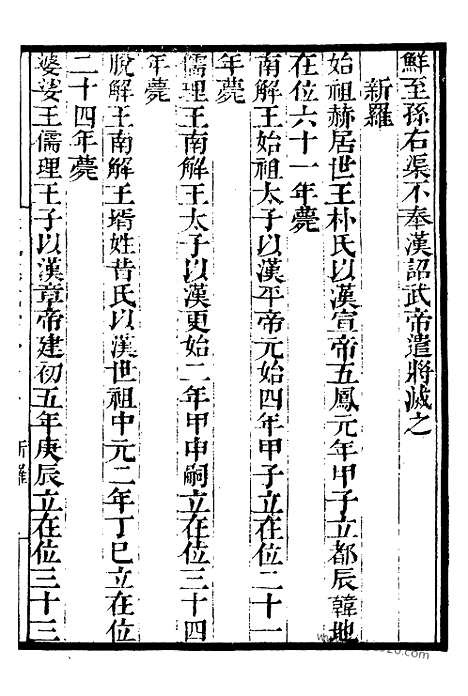 鮮至孫右渠不奉漢詔武帝遣將滅之
新羅
始祖赫居世王朴氏以漢宣帝五鳳元年甲子立都辰韓地
在位六十一年薨
南解王始祖太子以漢平帝元始四年甲子立在位二十一
年薨
儒理王南解王太子以漢更始二年甲申嗣立在位三十四
年薨
脫解王南解王壻姓昔氏以漢世祖中元二年丁巳立在位
二十四年薨
婆娑王儒理王子以漢章帝建初五年庚辰立在位三十三
新羅